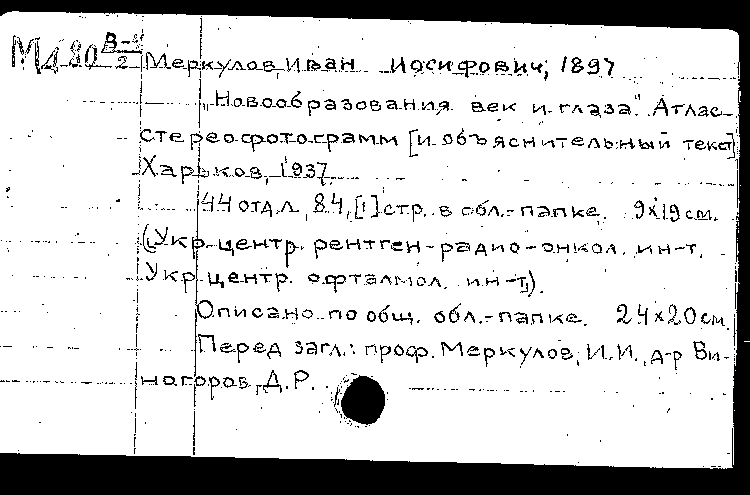 М480 В-4/2 Меркулов, Иван Иосифович, 1897
"Новообразования век и глаза." Атлас
стереофотограмм [и объяснительный текст]
Харьков, 1937.
44 отд. л., 84, [1] стр. в обл.-папке. 9х19 см.
(Укр. центр. рентген-радио-онкол. ин-т.
Укр. центр. офталмол. ин-т).
Описано по общ. обл.-папке. 24х20 см.
Перед загл.: проф. Меркулов, И.И., д-р Ви-
нагоров, Д.Р.